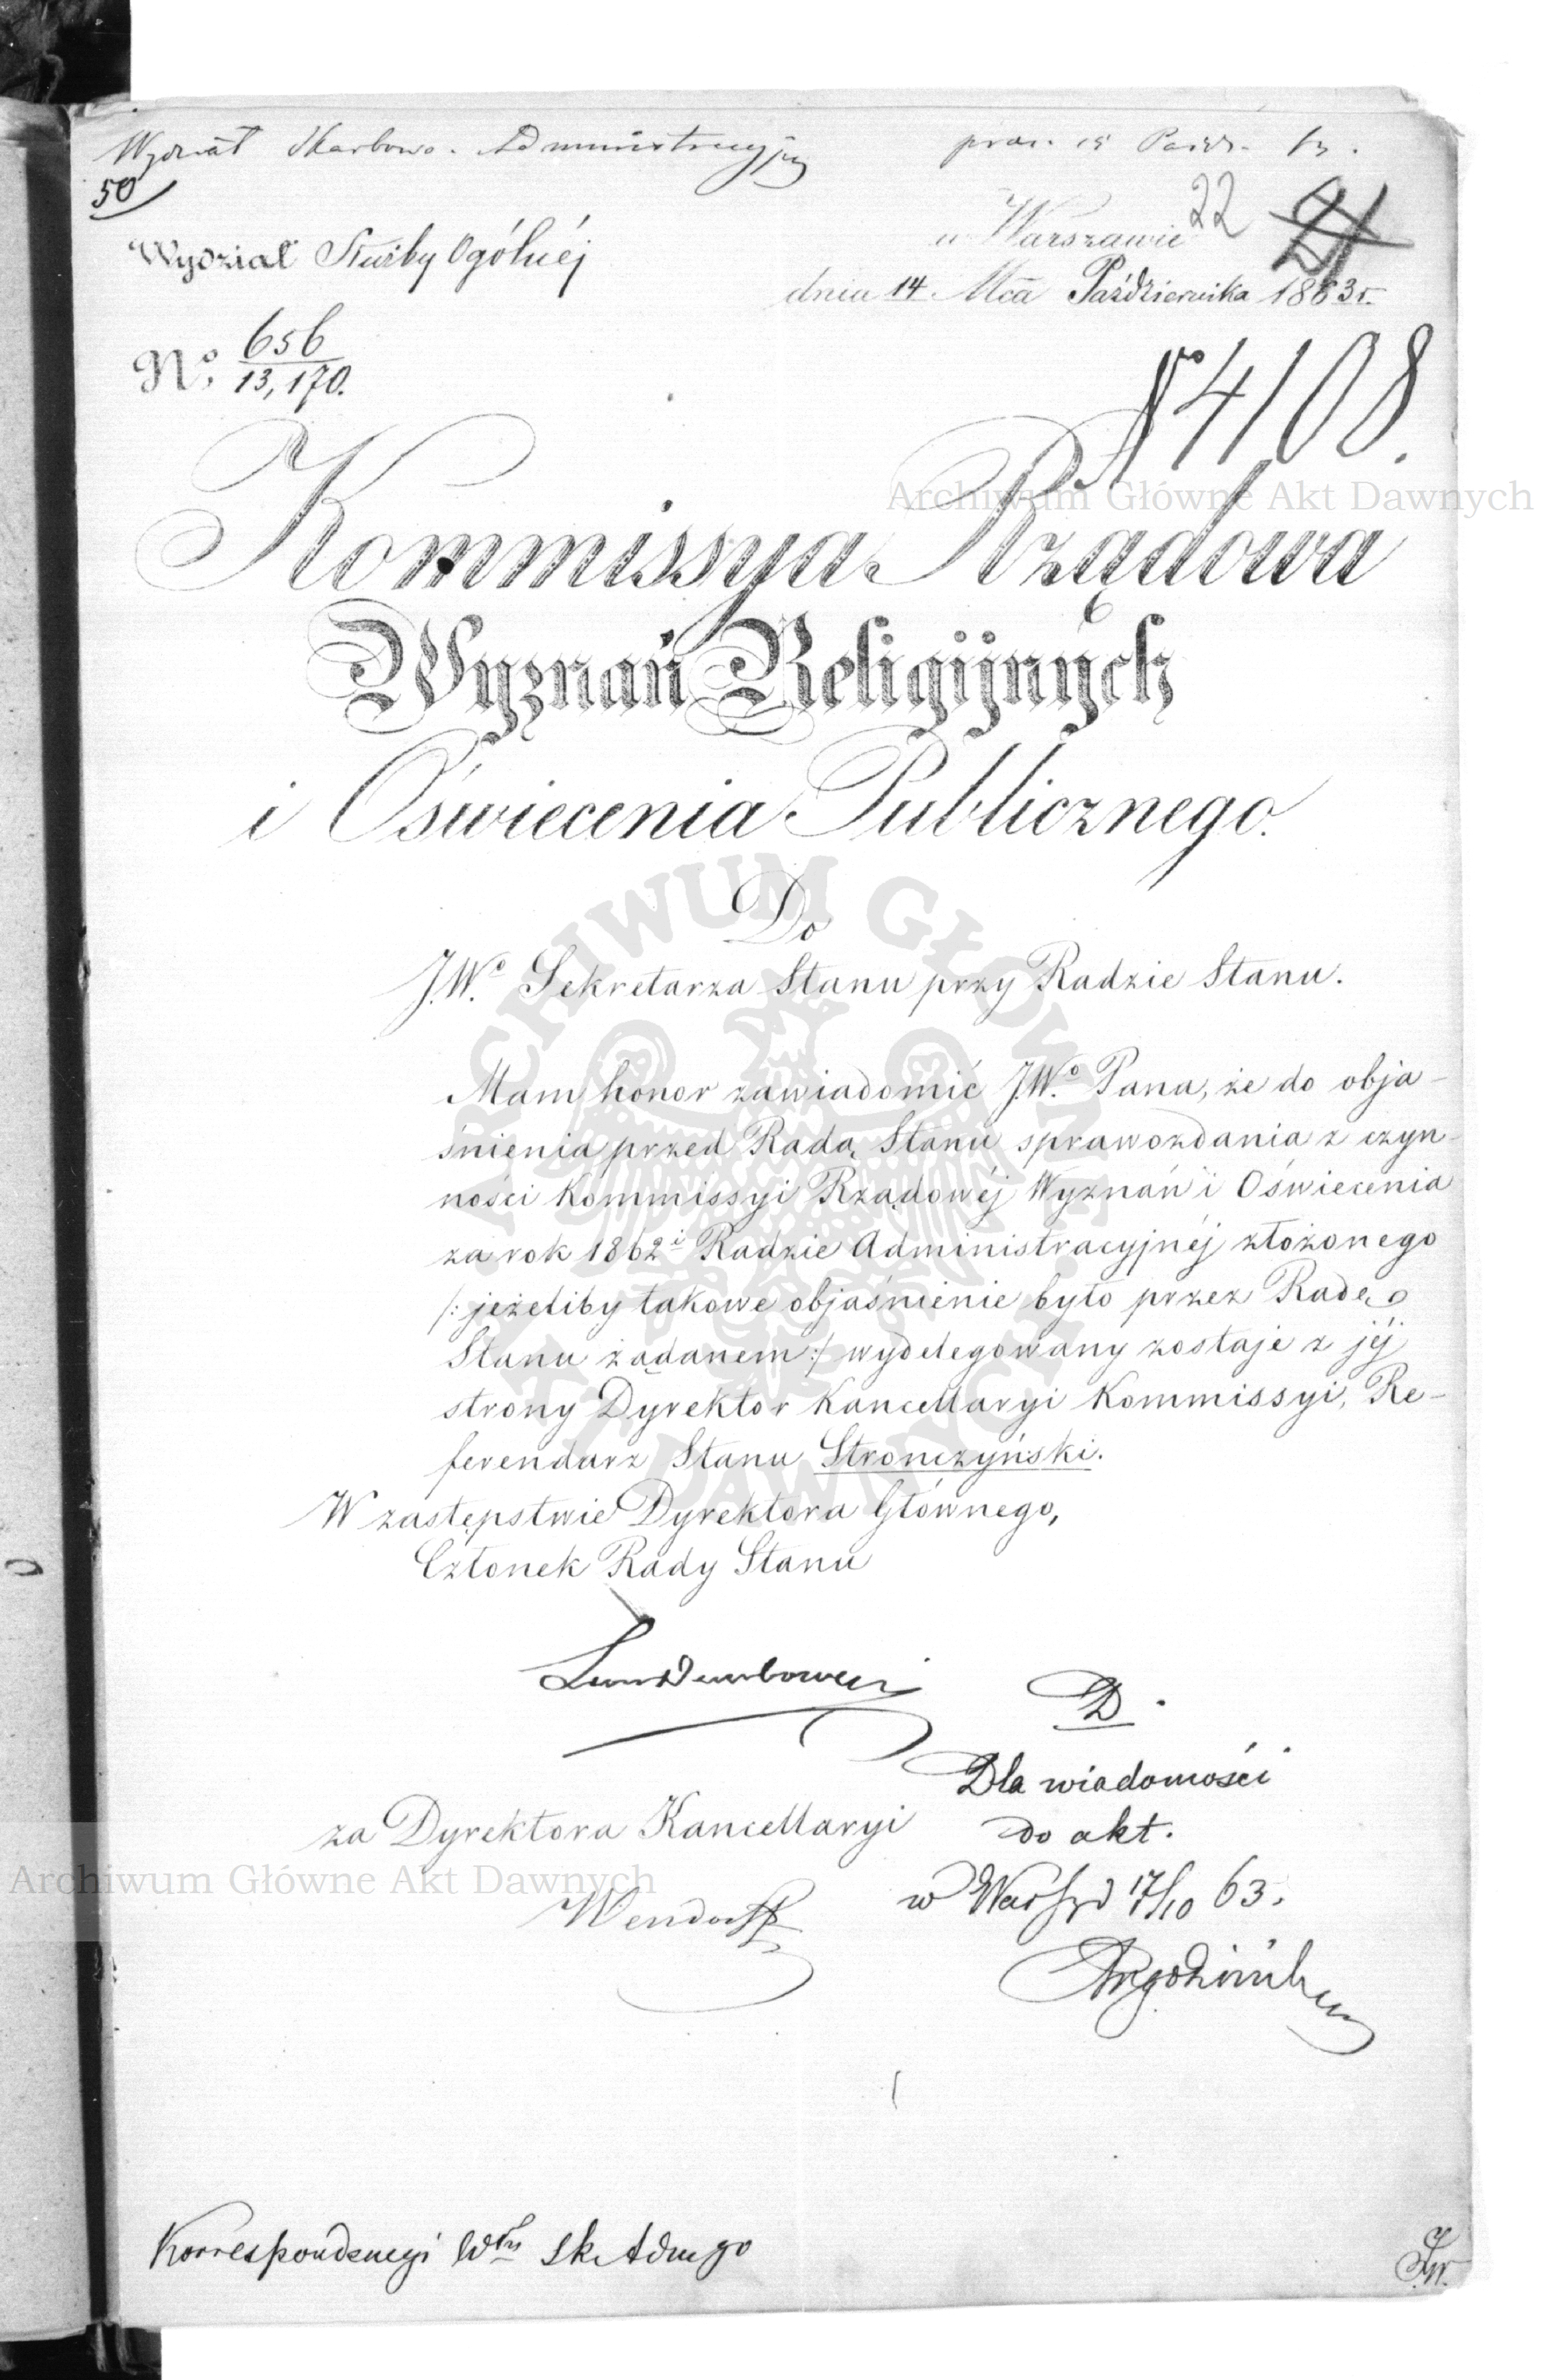 Wydział Skarbowo-Administracyjny
prez. 15 Paźdz. 63.
50
22
21
Wydział Służby Ogólnéj
w Warszawie
dnia 14 Mca Października 1863 r.
No. 656
13,170.
No 4108.
Archiwum Główne Akt Dawnych
Kommissya Rządowa
Wyznań Religijnych
i Oświecenia Publicznego.
Do
J.Wo. Sekretarza Stanu przy Radzie Stanu.
Mam honor zawiadomić J.Wo. Pana, że do obja-
śnienia przed Radą Stanu sprawozdania z czyn-
ności Kommissyi Rządowéj Wyznań i Oświecenia
za rok 1862 i Radzie Administracyjnéj złożonego
/: jeżeliby takowe objaśnienie było przez Radę
Stanu żądanem :/ wydelegowany zostaje z jéj
strony Dyrektor Kancellaryi Kommissyi, Re-
ferendarz Stanu Stronczyński.
W zastępstwie Dyrektora Głównego,
Członek Rady Stanu
D.
Dla wiadomości
do akt.
za Dyrektora Kancellaryi
w 17/10 63.
Archiwum Główne Akt Dawnych
Wendorff
Korrespondencyi Włu Sk. Admgo
ARCHIWUM GŁÓWNE AKT DAWNYCH